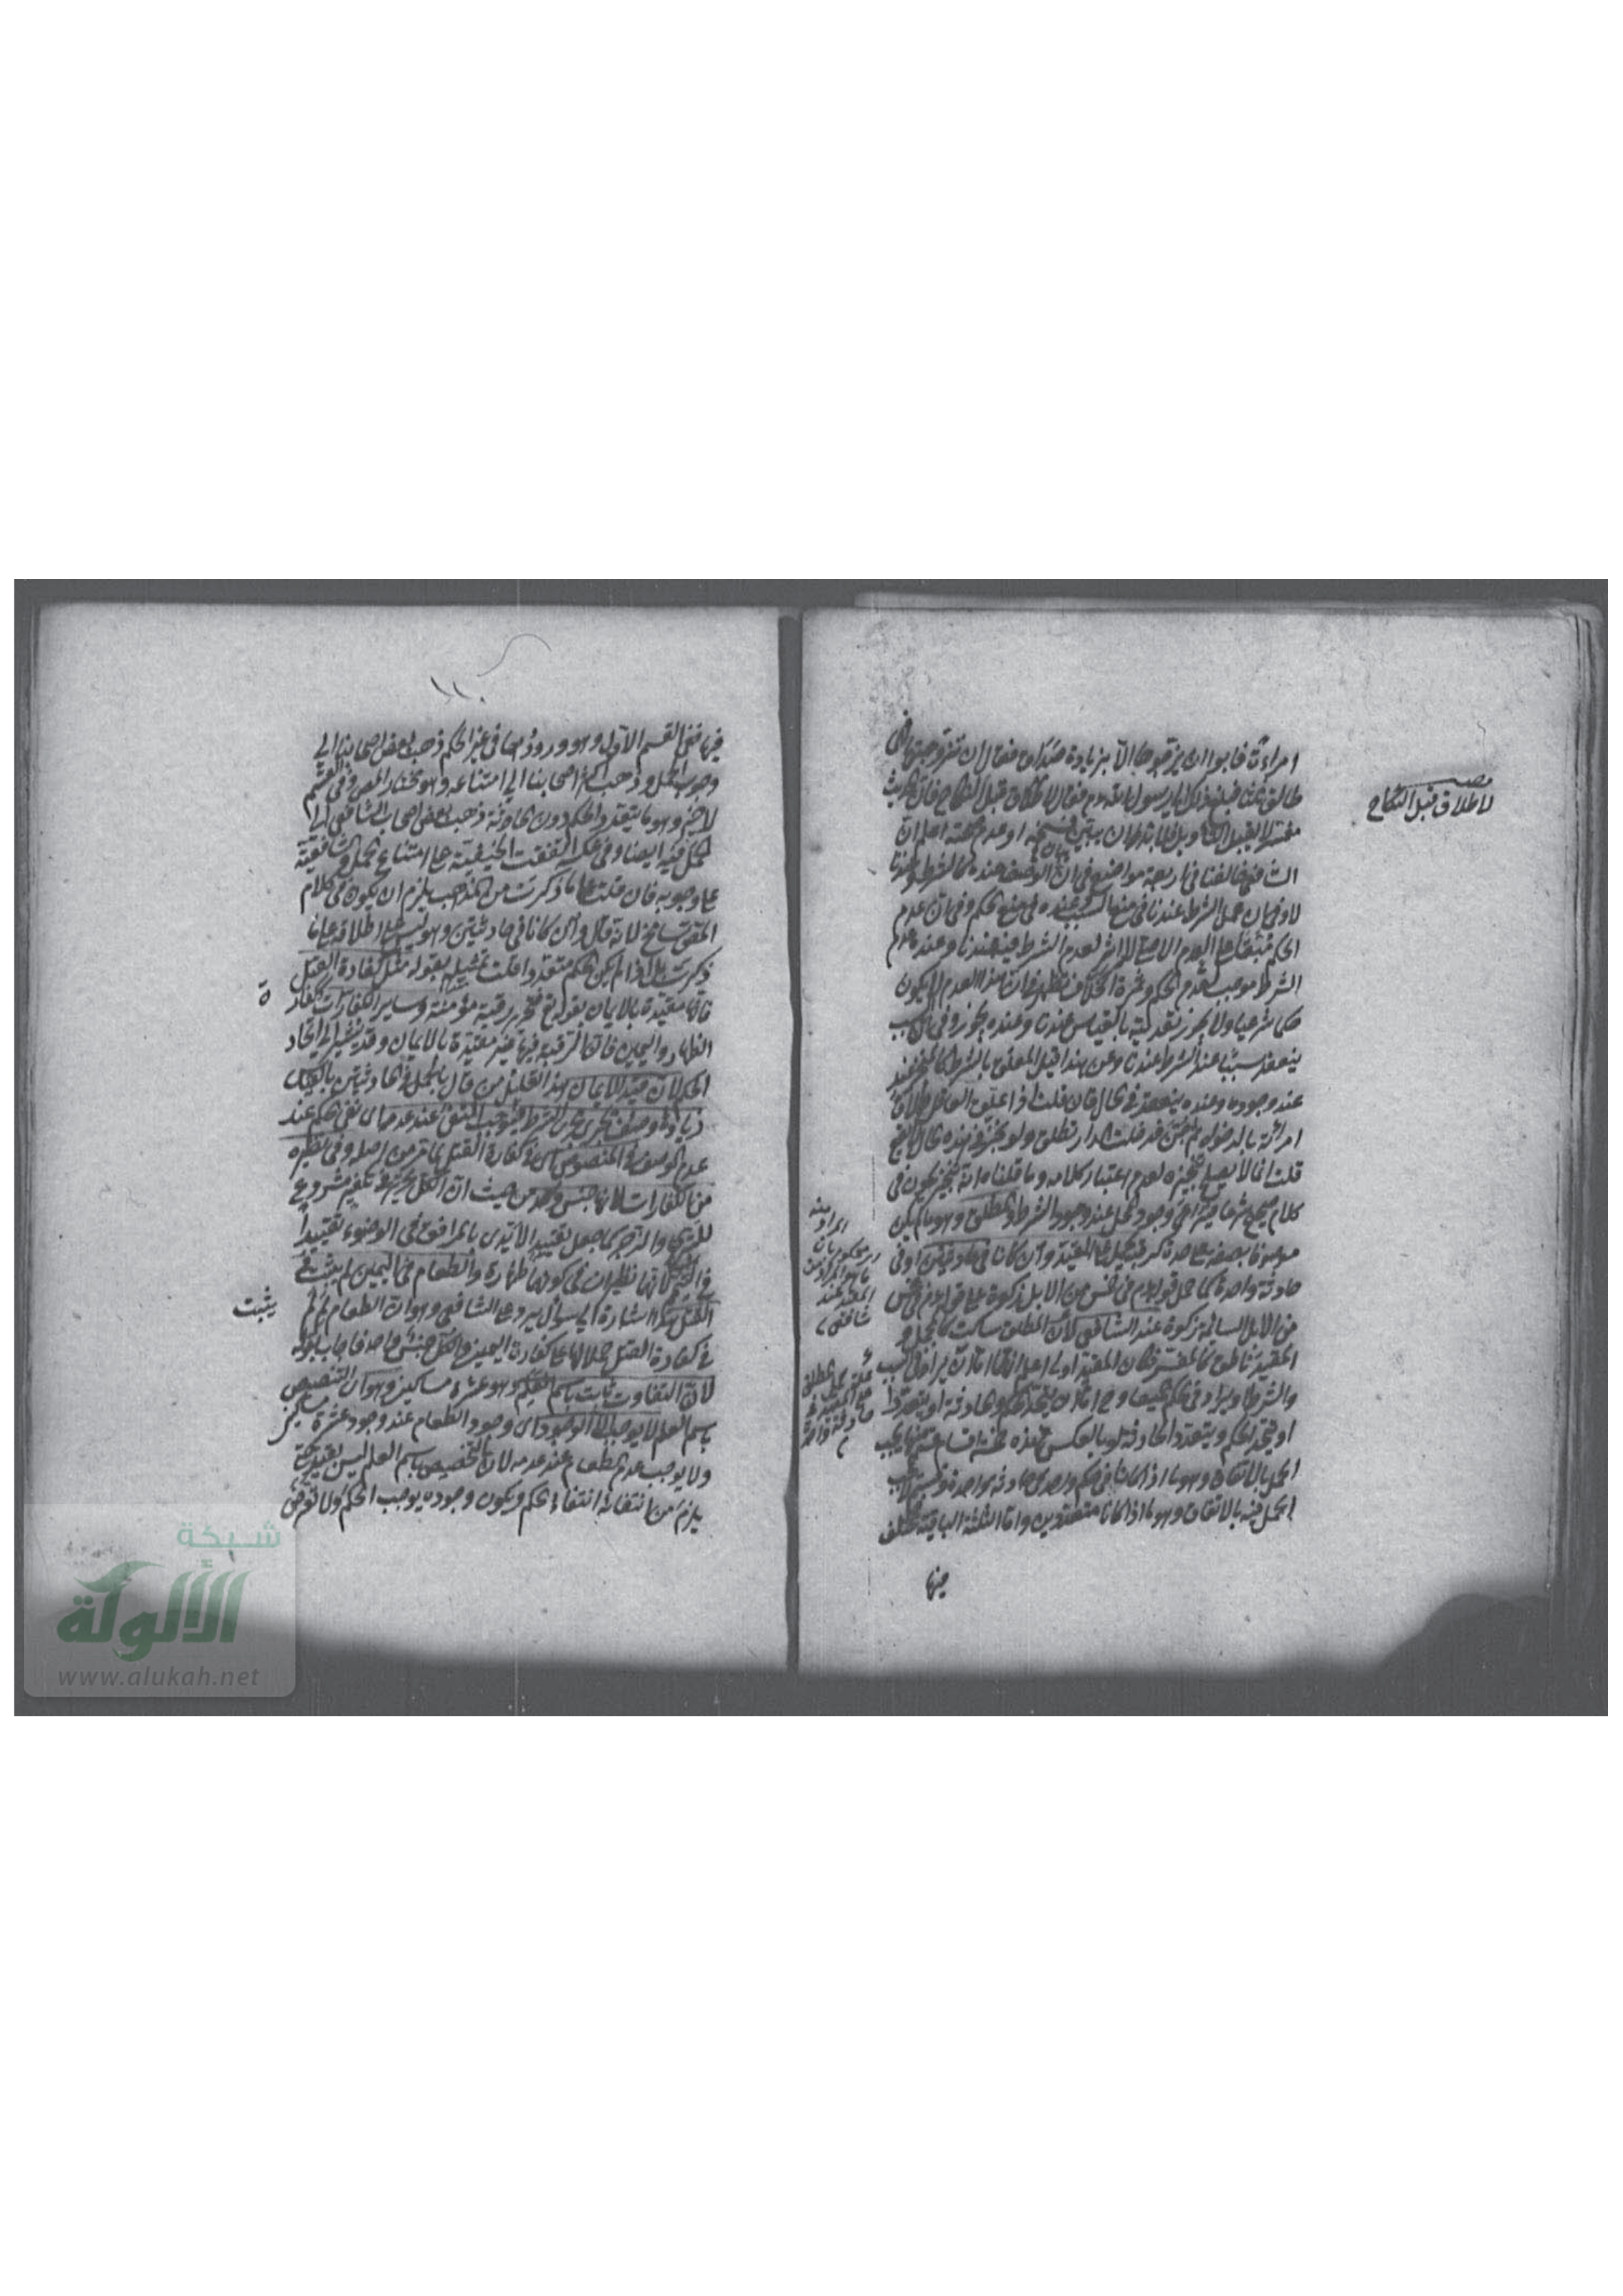 امراءة فابوا ان يزوجوها الا بزيادة صداق فقال ان تزوجتها فهي
طالق ثلثا فبلغ ذلك رسول الله عم فقال لا طلاق قبل النكاح فان الحديث
مفسر لا يقبل التاويل فلا بد ان يبين نسخه او عدم صحته اعلم ان
الشافعي خالفنا في اربعة مواضع في ان الوصف عنده كالشرط وعندنا
لا وفي ان عمل الشرط عندنا في منع السبب وعنده في منع الحكم وفي ان عدم
الحكم مبقا على العدم الاصلي لا اثر لعدم الشرط فيه عندنا وعنده عدم
الشرط موجب لعدم الحكم وثمرة الخلاف تظهر في ان هذا العدم لا يكون
حكما شرعيا ولا يجوز تعديته بالقياس عندنا وعنده يجوز وفي ان السبب
ينعقد سببا عند الشرط عندنا وعن هذا قيل المعلق بالشرط كالمنجز عند
عند وجوده وعنده ينعقد في الحال فان قلت اذا علق العاقل طلاق
امرأته بالدخول ثم جن فدخلت الدار تطلق ولو نجز في هذه الحال لا يقع
قلت انما لا يصح تنجيزه لعدم اعتبار كلامه وما قلناه انه تنجيز يكون في
كلام صحيح شرعا في وجود المحل عند وجود الشرط والمطلق وهو ما لم يكن
موصوفا بصفة على حدة ذكر يحمل على المقيد وان كانا في حادثتين او في
حادثة واحدة كما حمل قوله عم في خمس من الابل زكوة على قوله عم في خمس
من الابل السائمة زكوة عند الشافعي لان المطلق ساكت كالمجمل و
المقيد ناطق كالمفسر فكان المقيد اولى اعلم انهما اما ان يردا في السبب
والشرط او يردا في الحكم وح اما ان يتحد الحكم والحادثة او يتعددا
او يتحد الحكم ويتعدد الحادثة او بالعكس فهذه خمسة اقسام منها يجب
الحمل بالاتفاق وهو ما اذا كانا في حكم واحد في حادثة واحدة وقسم لا يجب
الحمل فيه بالاتفاق وهو ما اذا كانا متعددين واما الثلثة الباقية مختلف
فيها
لا طلاق قبل النكاح
فيها ففي القسم الاول وهو ورودهما في غير الحكم ذهب بعض اصحابنا الى
وجوب الحمل وذهب اكثر اصحابنا الى امتناعه وهو مختار المص وفي القسم
لاخر وهو ما يتعدد الحكم دون الحادثة ذهب بعض اصحاب الشافعي الى
الحمل فيه ايضا وفي عكسه اتفقت الحنفية على امتناع الحمل والشافعية
على وجوبه فان قلت على ما ذكرت من المذاهب يلزم ان يكون في كلام
المص تسامح لانه قال وان كانا في حادثتين وهو ليس على اطلاقه على ما
ذكرت بل اذا لم يكن الحكم متعددا قلت تمثيله بقوله مثل كفارة القتل
فانها مقيدة بالايمان بقوله تع فتحرير رقبة مؤمنة وساير الكفارات ككفارة
الظهار واليمين فان الرقبة فيها غير مقيدة بالايمان وقد يشير الى اتحاد
الحكم لان قيد الايمان هذا تعليل من قال بالحمل في الحادثتين بالقياس
زيادة وصف يجري مجرى الشرط فيوجب النفي عند عدمه اي نفي الحكم عند
عدم الوصف في المنصوص اي في كفارة القتل كما مر من اصله وفي نظيره
من الكفارات لانها جنس واحد من حيث ان الكل تحرير في تكفير مشروع
للستر والزجر كما جعل تقييد الايدي بالمرافق في الوضوء تقييدا
في التيمم لانهما نظيران في كونهما طهارة والطعام في اليمين لم يثبت في
القتل هذا اشارة الى سؤال يرد على الشافعي وهو ان الطعام لم لم
يثبت
في كفارة القتل حملا لها على كفارة اليمين والكل جنس واحد فاجاب بقوله
لان التفاوت ثابت باسم العلم وهو عشرة مساكين وهو ان التنصيص
باسم العلم لا يوجب الا الوجود اي وجود الطعام عند وجود عشرة مساكين
ولا يوجب عدم الطعام عند عدمه لان التخصيص باسم العلم ليس بقيد حتى
يلزم من انتفائه انتفاء الحكم ويكون وجوده يوجب الحكم ولا تعرض
شبكة
الألوكة
www.alukah.net